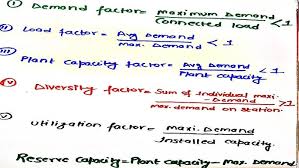 I Demand factor = Maximum Demand / Connected load < 1
II Load factor = Avg Demand / Max. Demand < 1
III Plant capacity factor = Avg Demand / Plant capacity < 1
IV Diversity factor = Sum of Individual maxi- Demand / max. demand on station > 1
V Utilization factor = Maxi. Demand / Installed capacity
Reserve capacity = Plant capacity - Max. Demand